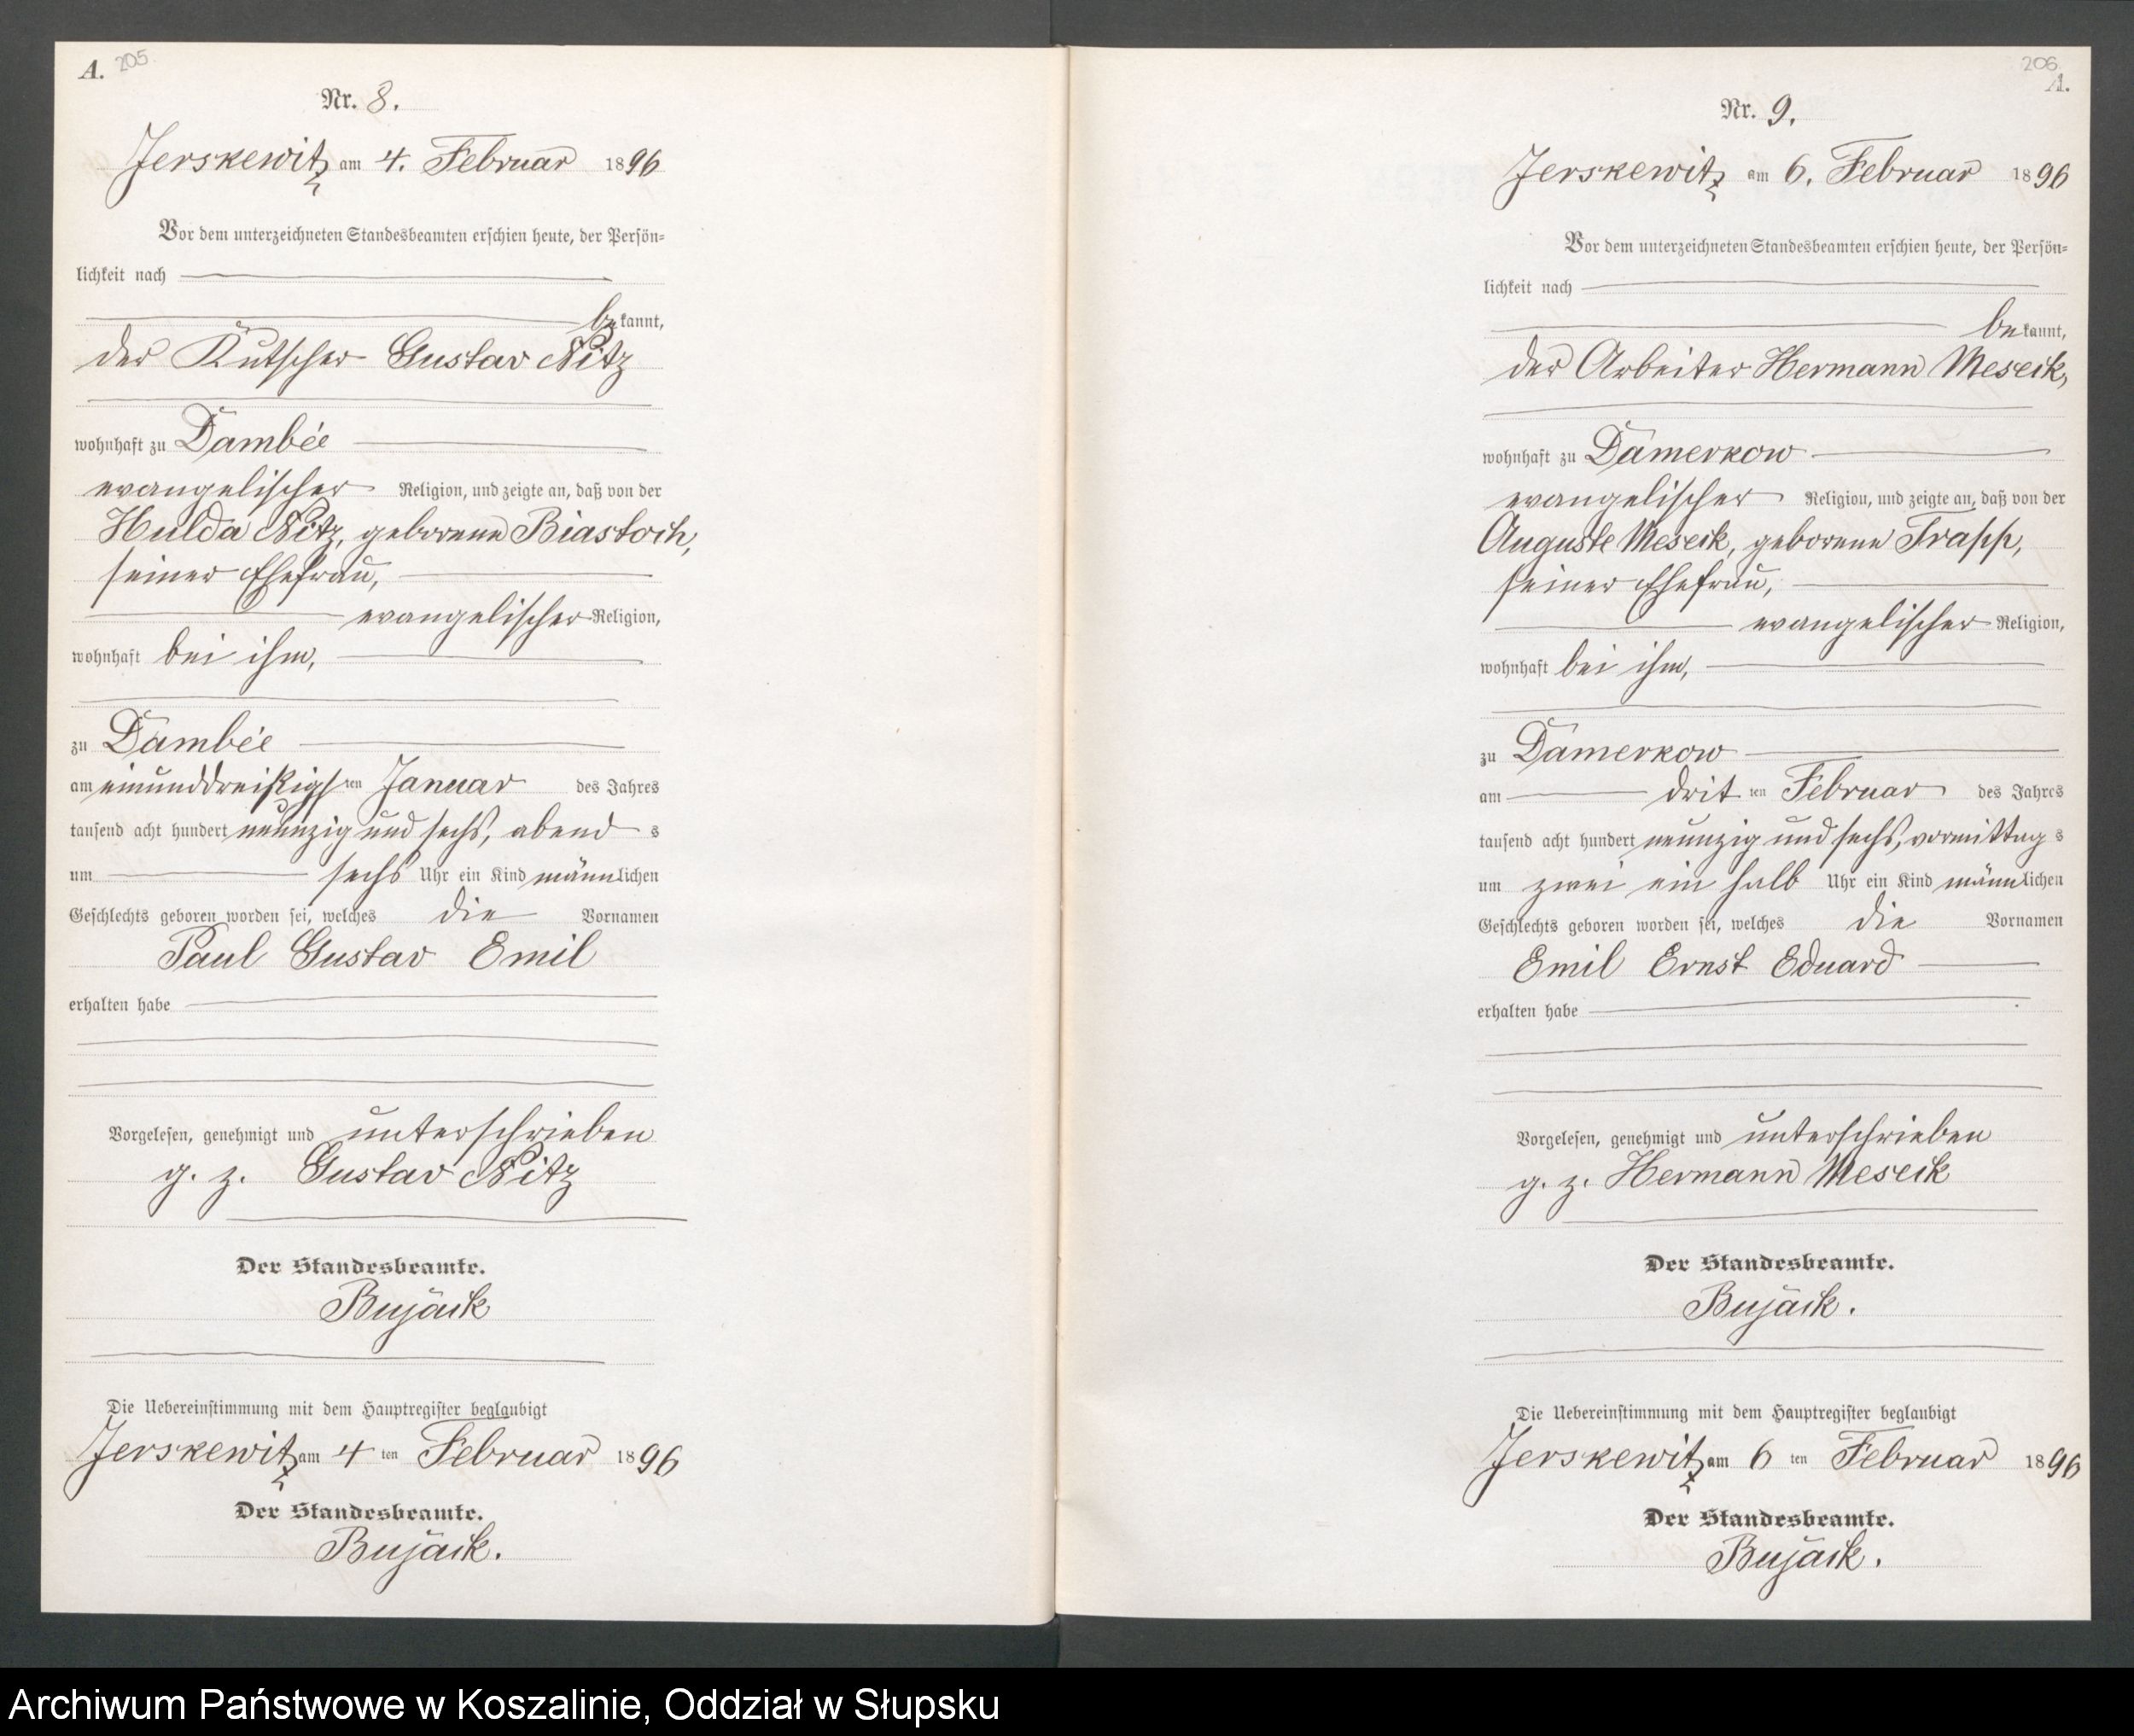 A. 205
Nr. 8.
Jerskewitz am 4. Februar 1896
Vor dem unterzeichneten Standesbeamten erschien heute, der Persön-
lichkeit nach
bekannt,
der Kutscher Gustav Nitz
wohnhaft zu Dambée
evangelischer Religion, und zeigte an, daß von der
Hulda Nitz, geborene Biastoch,
seiner Ehefrau,
evangelischer Religion,
wohnhaft bei ihm,
zu Dambée
am einunddreißigsten Januar des Jahres
tausend acht hundert neunzig und sechs, abends
um sechs Uhr ein Kind männlichen
Geschlechts geboren worden sei, welches die Vornamen
Paul Gustav Emil
erhalten habe
Vorgelesen, genehmigt und unterschrieben
g. z. Gustav Nitz
Der Standesbeamte.
Bujack
Die Uebereinstimmung mit dem Hauptregister beglaubigt
Jerskewitz am 4 ten Februar 1896
Der Standesbeamte.
Bujack.
206
A.
Nr. 9.
Jerskewitz am 6. Februar 1896
Vor dem unterzeichneten Standesbeamten erschien heute, der Persön-
lichkeit nach
bekannt,
der Arbeiter Hermann Meseck,
wohnhaft zu Damerkow
evangelischer Religion, und zeigte an, daß von der
Auguste Meseck, geborene Trapp,
seiner Ehefrau,
evangelischer Religion,
wohnhaft bei ihm,
zu Damerkow
am dritten Februar des Jahres
tausend acht hundert neunzig und sechs, vormittags
um zwei ein halb Uhr ein Kind männlichen
Geschlechts geboren worden sei, welches die Vornamen
Emil Ernst Eduard
erhalten habe
Vorgelesen, genehmigt und unterschrieben
g. z. Hermann Meseck
Der Standesbeamte.
Bujack.
Die Uebereinstimmung mit dem Hauptregister beglaubigt
Jerskewitz am 6 ten Februar 1896
Der Standesbeamte.
Bujack.
Archiwum Państwowe w Koszalinie, Oddział w Słupsku